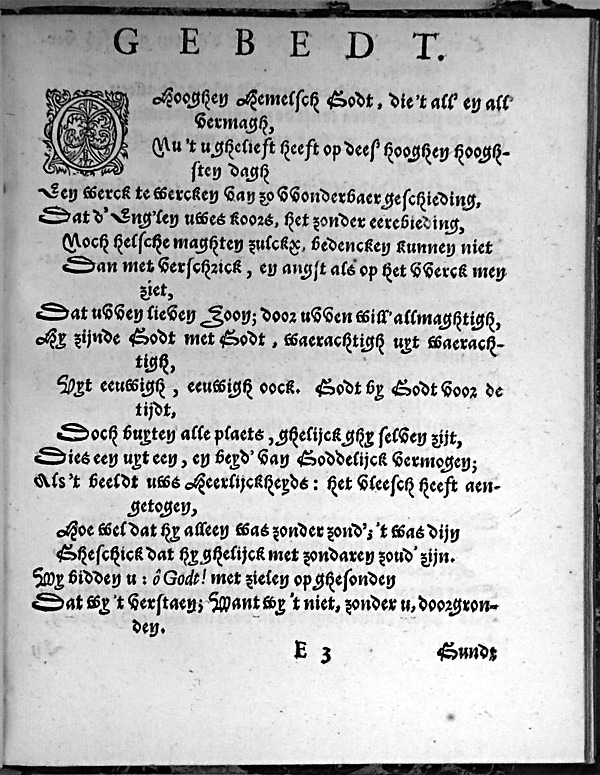 GEBEDT.
O Hooghen Hemelsch Godt, die't all' en all
vermagh,
Nu 't u ghelieft heeft op dees' hooghen hoogh-
sten dagh
Een werck te wercken van zo vvonderbaer geschieding,
Dat d' Eng'len uwes koors, het zonder eerebieding,
Noch helsche maghten zulckx, bedencken kunnen niet
Dan met verschrick, en angst als op het vverck men
ziet,
Dat uvven lieven Zoon; door uvven will' allmaghtigh,
Hy zijnde Godt met Godt, waerachtigh uyt waerach-
tigh,
Uyt eeuwigh, eeuwigh oock. Godt by Godt voor de
tijdt,
Doch buyten alle plaets, ghelijck ghy selven zijt,
Dies een uyt een, en beyd' van Goddelijck vermogen;
Als 't beeldt uws Heerlijckheyds: het vleesch heeft aen-
getogen,
Hoe wel dat hy alleen was zonder zond'; 't was dijn
Gheschick dat hy ghelijck met zondaren zoud' zijn.
Wy bidden u: ô Godt! met zielen op ghesonden
Dat wy 't verstaen; Want wy 't niet, zonder u, doorgron-
den.
E 3 Gundt